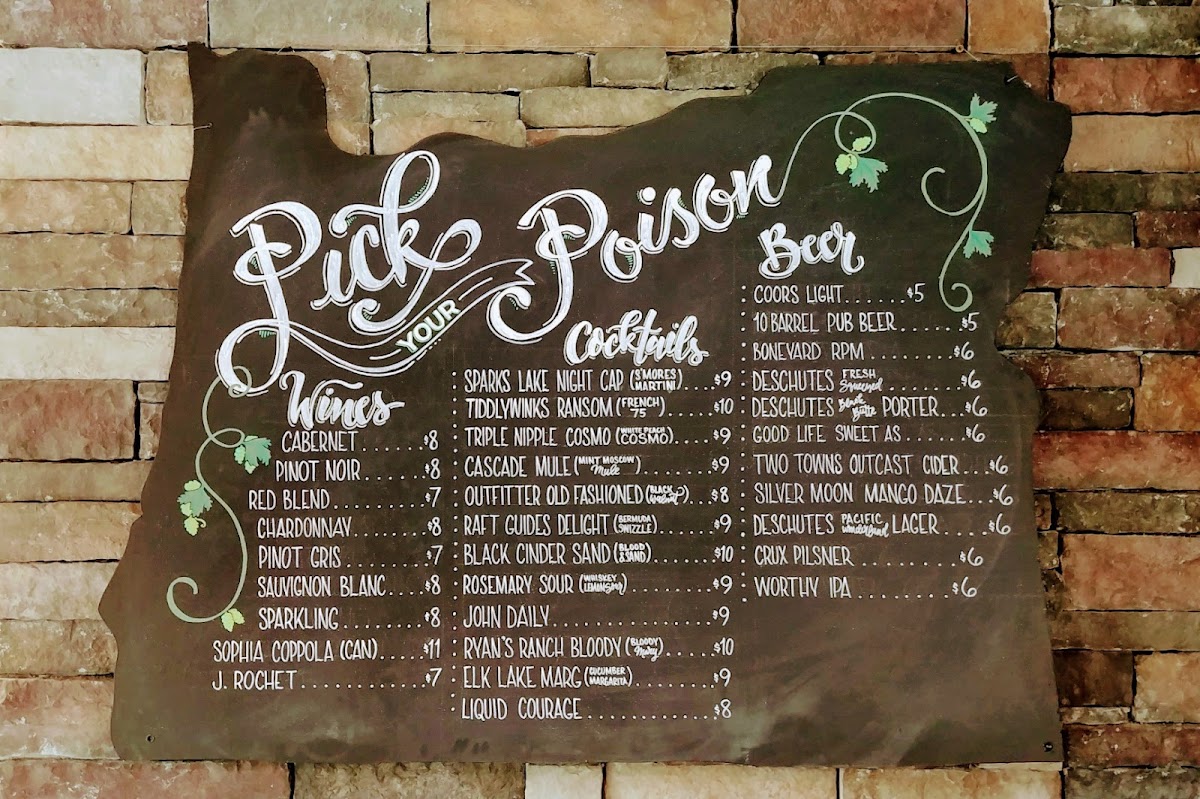 Pick
YOUR
Poison
Wines
CABERNET.......$8
PINOT NOIR.......$8
RED BLEND.........$7
CHARDONNAY.......$8
PINOT GRIS........$7
SAUVIGNON BLANC....$8
SPARKLING........$8
SOPHIA COPPOLA (CAN).....$11
J. ROCHET............$7
Cocktails
SPARKS LAKE NIGHT CAP (S'MORES MARTINI)....$9
TIDDLYWINKS RANSOM (FRENCH 75)......$10
TRIPLE NIPPLE COSMO (WHITE PEACH COSMO)....$9
CASCADE MULE (MINT MOSCOW Mule)........$9
OUTFITTER OLD FASHIONED (BLACK)...$8
RAFT GUIDES DELIGHT (BERMUDA SWIZZLE).......$9
BLACK CINDER SAND (BLOOD & SAND).......$10
ROSEMARY SOUR (WHISKEY LEMONSOUR).........$9
JOHN DAILY.................$9
RYAN'S RANCH BLOODY (BLOODY Mary).....$10
ELK LAKE MARG (CUCUMBER MARGARITA)........$9
LIQUID COURAGE.............$8
Beer
COORS LIGHT.......$5
10 BARREL PUB BEER......$5
BONEYARD RPM.........$6
DESCHUTES FRESH Squeezed........$6
DESCHUTES Black Butte PORTER...$6
GOOD LIFE SWEET AS.......$6
TWO TOWNS OUTCAST CIDER...$6
SILVER MOON MANGO DAZE...$6
DESCHUTES PACIFIC Wonderland LAGER.....$6
CRUX PILSNER...........$6
WORTHY IPA...........$6